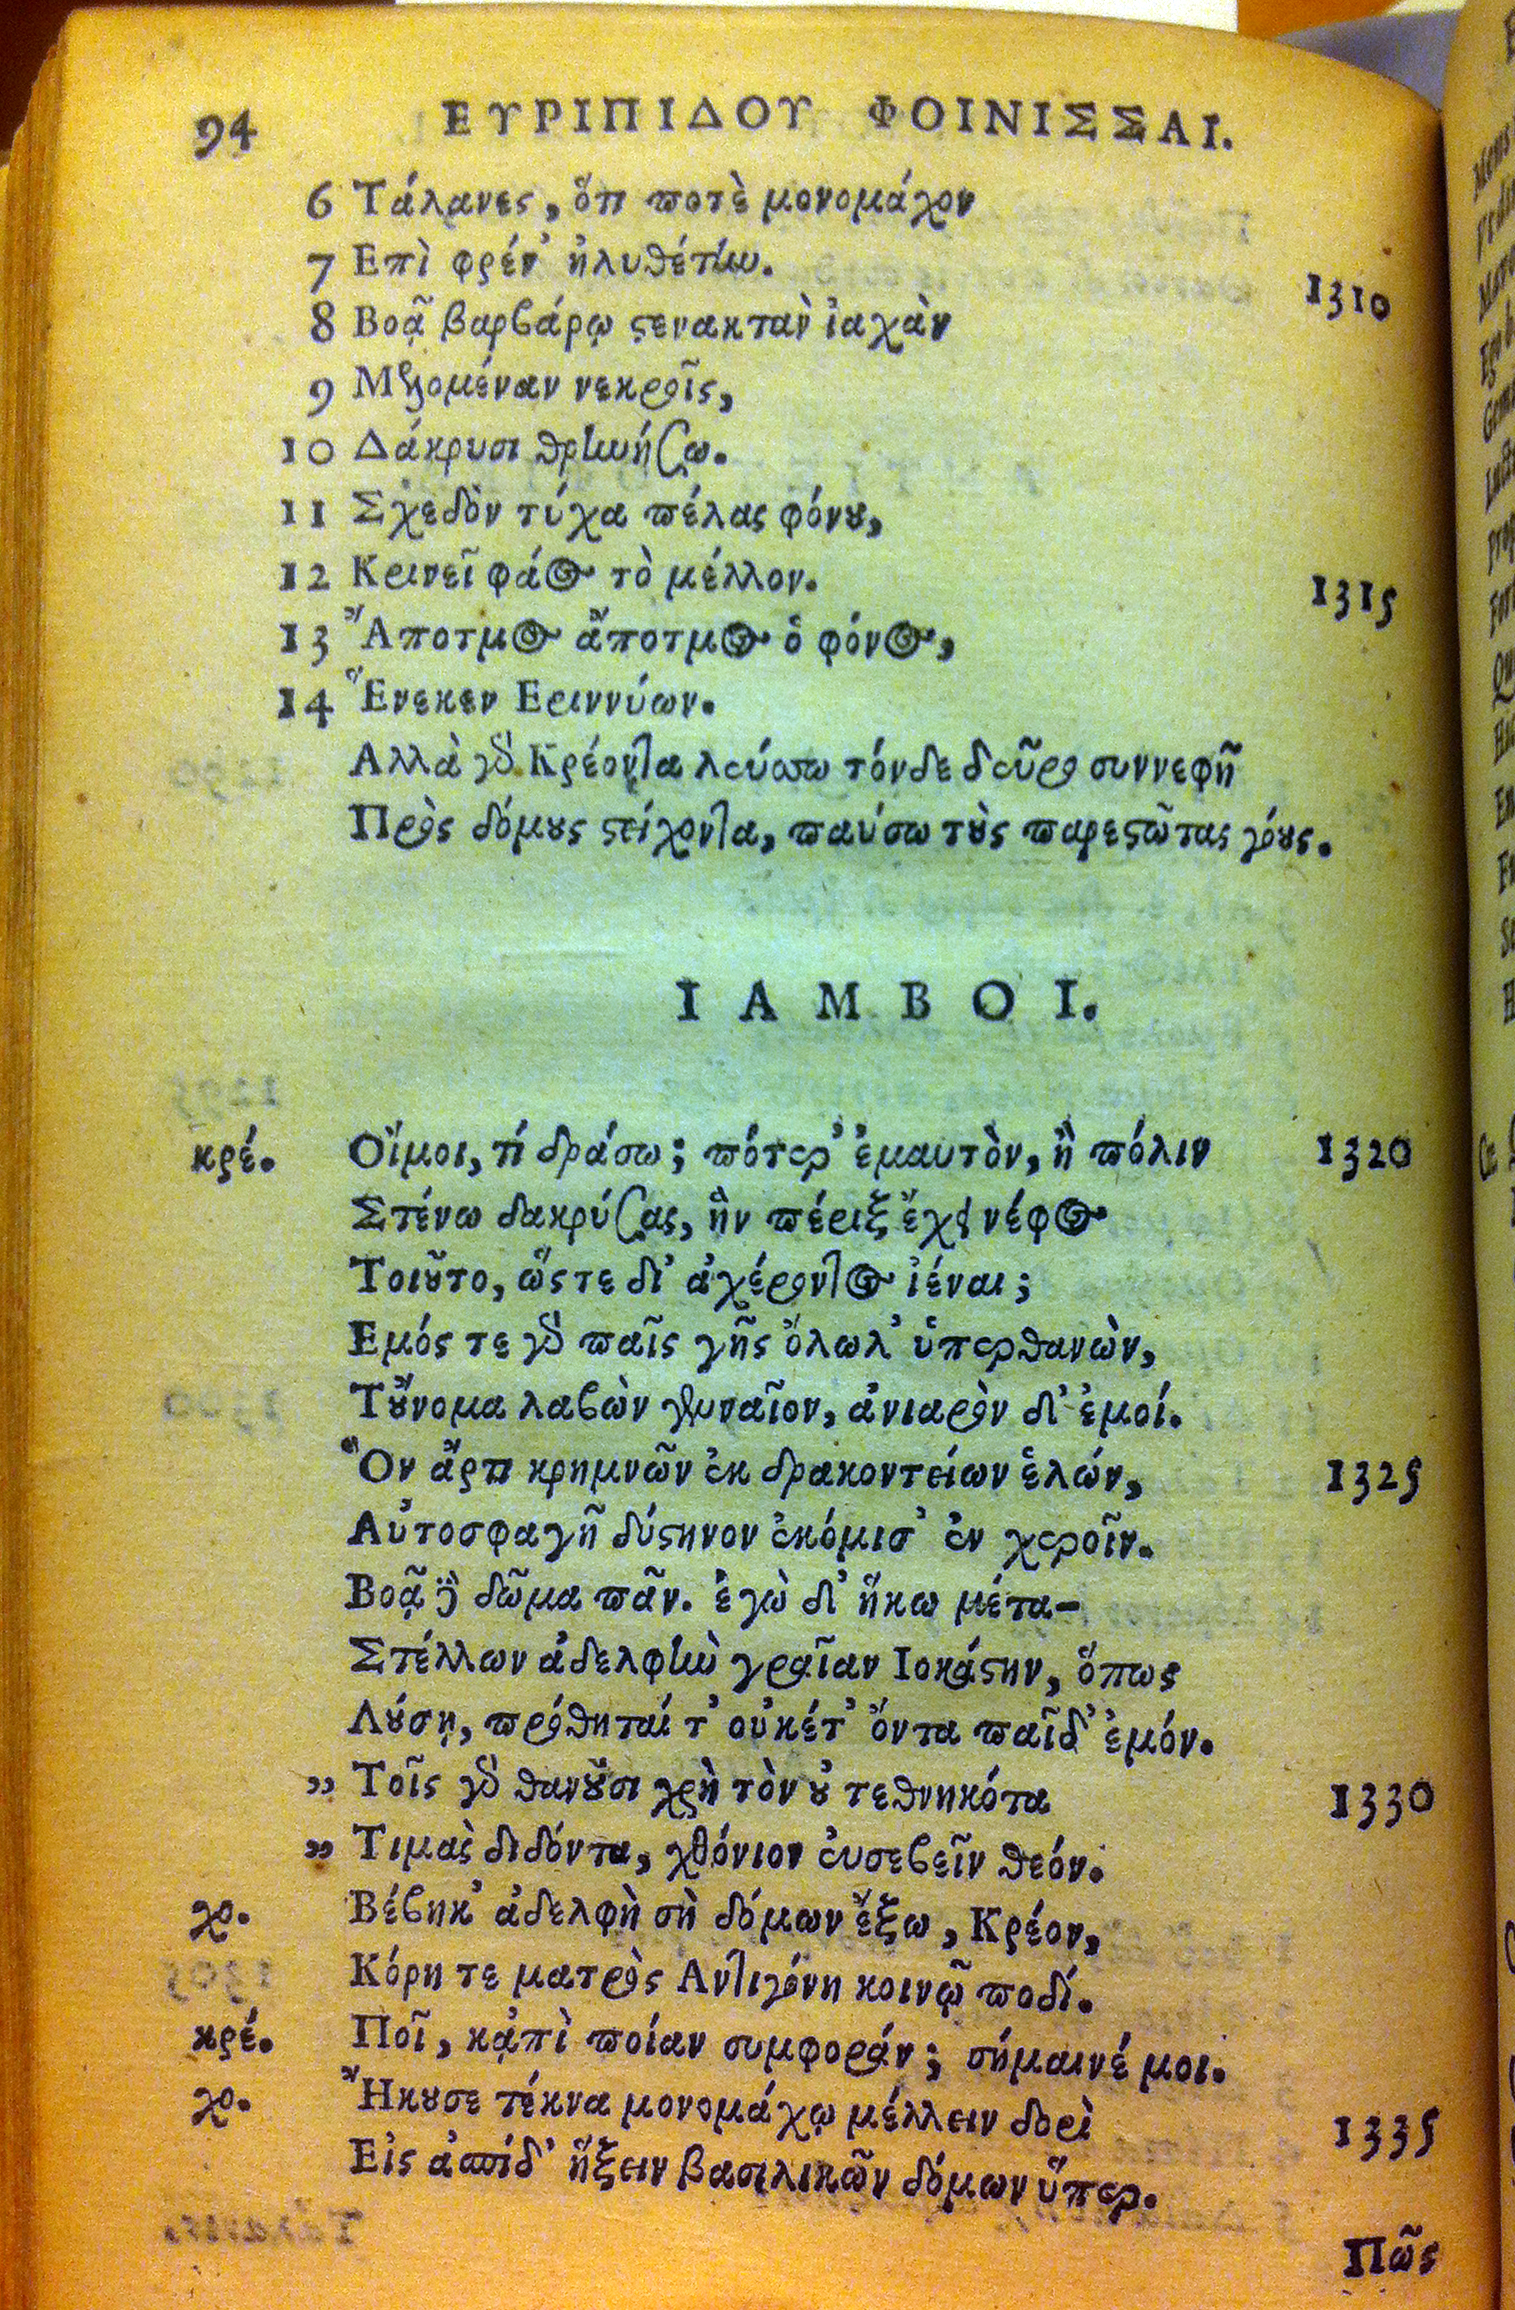 94 ΕΥΡΙΠΙΔΟΥ ΦΟΙΝΙΣΣΑΙ.
6 Τάλανες, ὅτι ποτὲ μονομάχον
7 Επὶ φρέν' ἠλυθέτην. 1310
8 Βοᾷ βαρβάρῳ στενακτὰν ἰαχὰν
9 Μελομέναν νεκροῖς,
10 Δάκρυσι θρηνήσω.
11 Σχεδὸν τύχα πέλας φόνου,
12 Κρινεῖ φάος τὸ μέλλον. 1315
13 Ἄποτμος ἄποτμος ὁ φόνος,
14 Ἕνεκεν Εριννύων.
Αλλὰ γὰρ Κρέοντα λεύσσω τόνδε δεῦρο συννεφῆ
Πρὸς δόμους στείχοντα, παύσω τοὺς παρεστῶτας γόους.
ΙΑΜΒΟΙ.
κρέ. Οἴμοι, τί δράσω; πότερ' ἐμαυτὸν, ἢ πόλιν 1320
Στένω δακρύσας, ἣν πέριξ ἔχει νέφος
Τοιοῦτο, ὥστε δι' ἀχέροντος ἰέναι;
Εμός τε γὰρ παῖς γῆς ὄλωλ' ὑπερθανὼν,
Τοὔνομα λαβὼν γενναῖον, ἀνιαρὸν δ' ἐμοί.
Ὃν ἄρτι κρημνῶν ἐκ δρακοντείων ἑλών, 1325
Αὐτοσφαγῆ δύστηνον ἐκόμισ' ἐν χεροῖν.
Βοᾷ δὲ δῶμα πᾶν. ἐγὼ δ' ἥκω μέτα-
Στέλλων ἀδελφὴν γραῖαν Ιοκάστην, ὅπως
Λούσῃ, πρόθηταί τ' οὐκέτ' ὄντα παῖδ' ἐμόν.
„ Τοῖς γὰρ θανοῦσι χρὴ τὸν οὐ τεθνηκότα 1330
„ Τιμὰς διδόντα, χθόνιον εὐσεβεῖν θεόν.
χο. Βέβηκ' ἀδελφὴ σὴ δόμων ἔξω, Κρέον,
Κόρη τε ματρὸς Αντιγόνη κοινῷ ποδί.
κρέ. Ποῖ, κἀπὶ ποίαν συμφοράν; σήμαινέ μοι.
χο. Ἤκουσε τέκνα μονομάχῳ μέλλειν δορὶ 1335
Εἰς ἀσπίδ' ἥξειν βασιλικῶν δόμων ὕπερ.
Πῶς